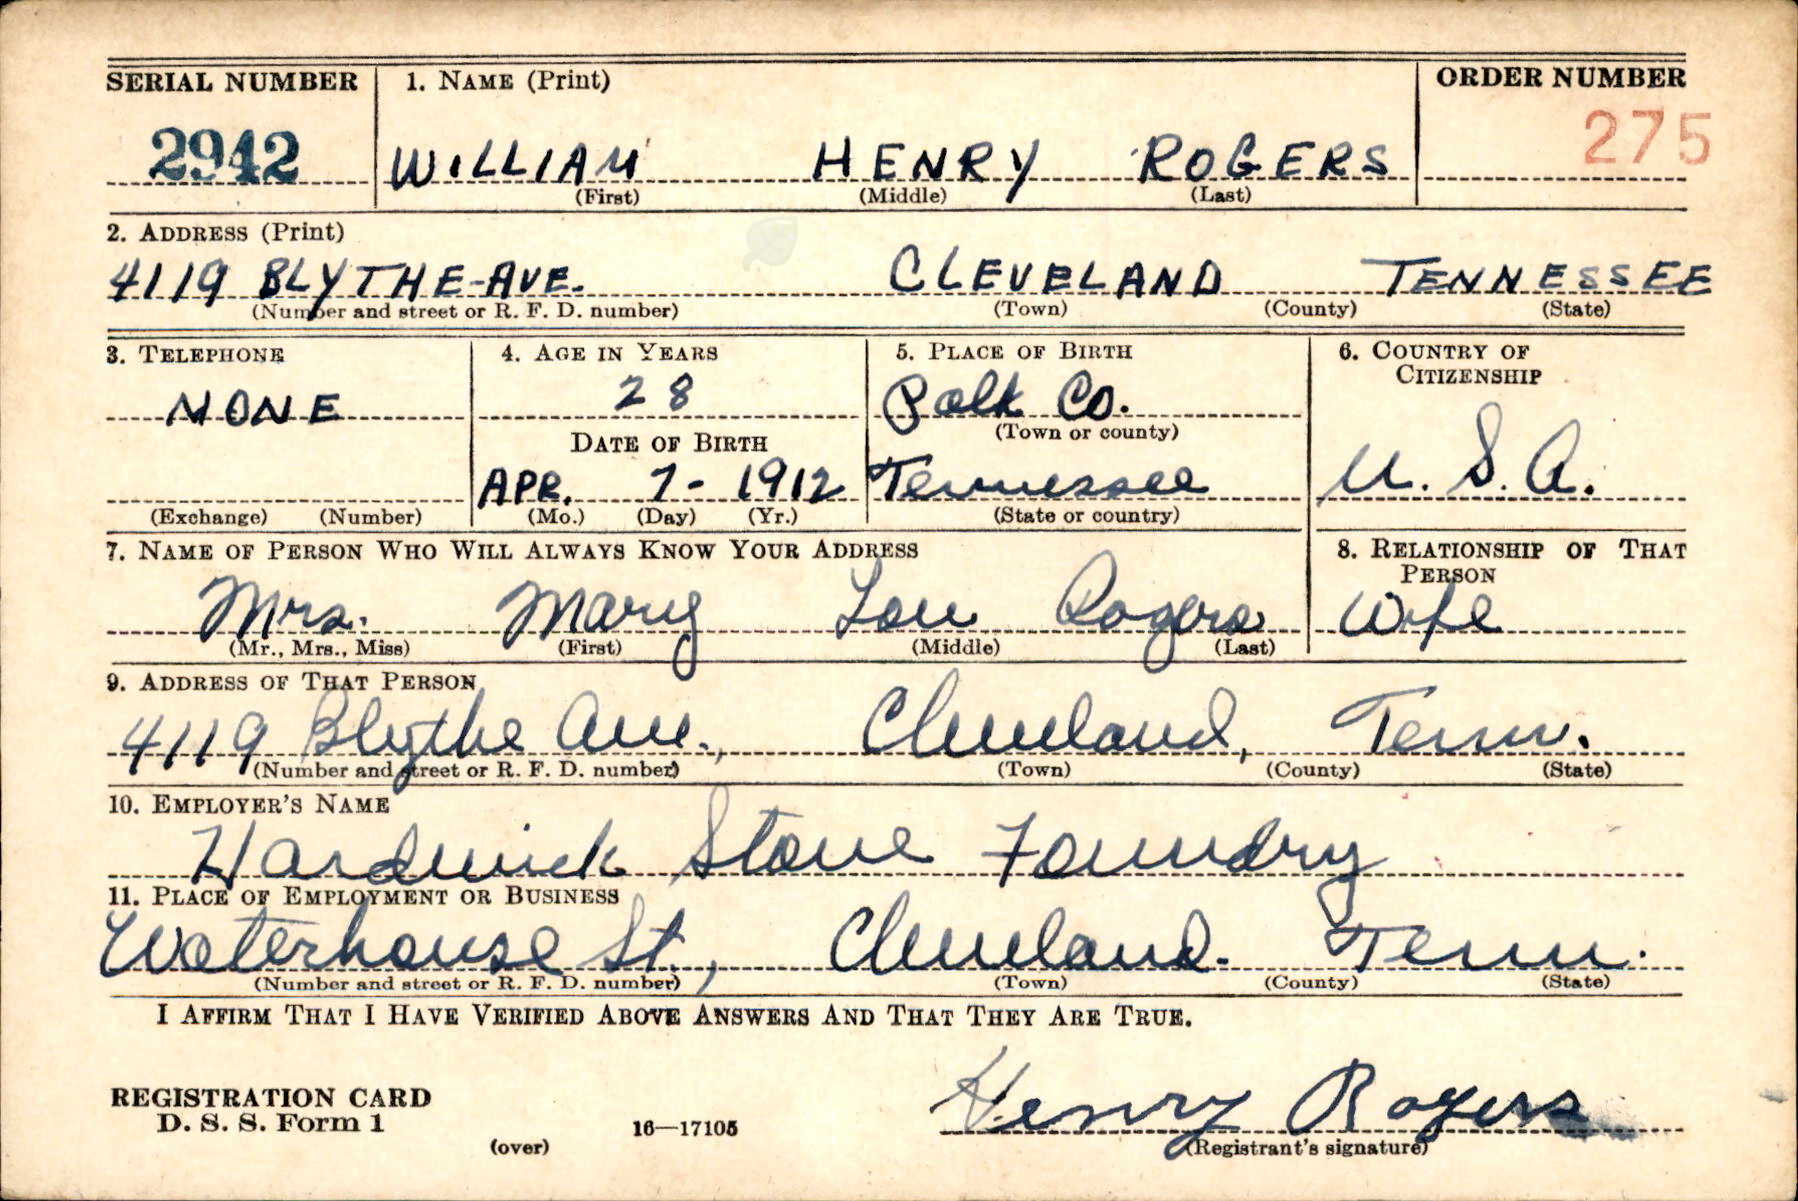 SERIAL NUMBER 1. NAME (Print) ORDER NUMBER
2942 WILLIAM HENRY ROGERS 275
(First) (Middle) (Last)
2. ADDRESS (Print)
4119 BLYTHE-AVE. CLEVELAND TENNESSEE
(Number and street or R. F. D. number) (Town) (County) (State)
3. TELEPHONE 4. AGE IN YEARS 5. PLACE OF BIRTH 6. COUNTRY OF CITIZENSHIP
NONE 28 Polk Co.
(Town or county)
DATE OF BIRTH
APR. 7- 1912 Tennessee U. S. A.
(Exchange) (Number) (Mo.) (Day) (Yr.) (State or country)
7. NAME OF PERSON WHO WILL ALWAYS KNOW YOUR ADDRESS 8. RELATIONSHIP OF THAT PERSON
Mrs. Mary Lou Rogers Wife
(Mr., Mrs., Miss) (First) (Middle) (Last)
9. ADDRESS OF THAT PERSON
4119 Blythe Ave., Cleveland, Tenn.
(Number and street or R. F. D. number) (Town) (County) (State)
10. EMPLOYER'S NAME
Hardwick Stove Foundry
11. PLACE OF EMPLOYMENT OR BUSINESS
Waterhouse St., Cleveland. Tenn.
(Number and street or R. F. D. number) (Town) (County) (State)
I AFFIRM THAT I HAVE VERIFIED ABOVE ANSWERS AND THAT THEY ARE TRUE.
Henry Rogers
REGISTRATION CARD
D. S. S. Form 1
(over) 16—17105 (Registrant's signature)